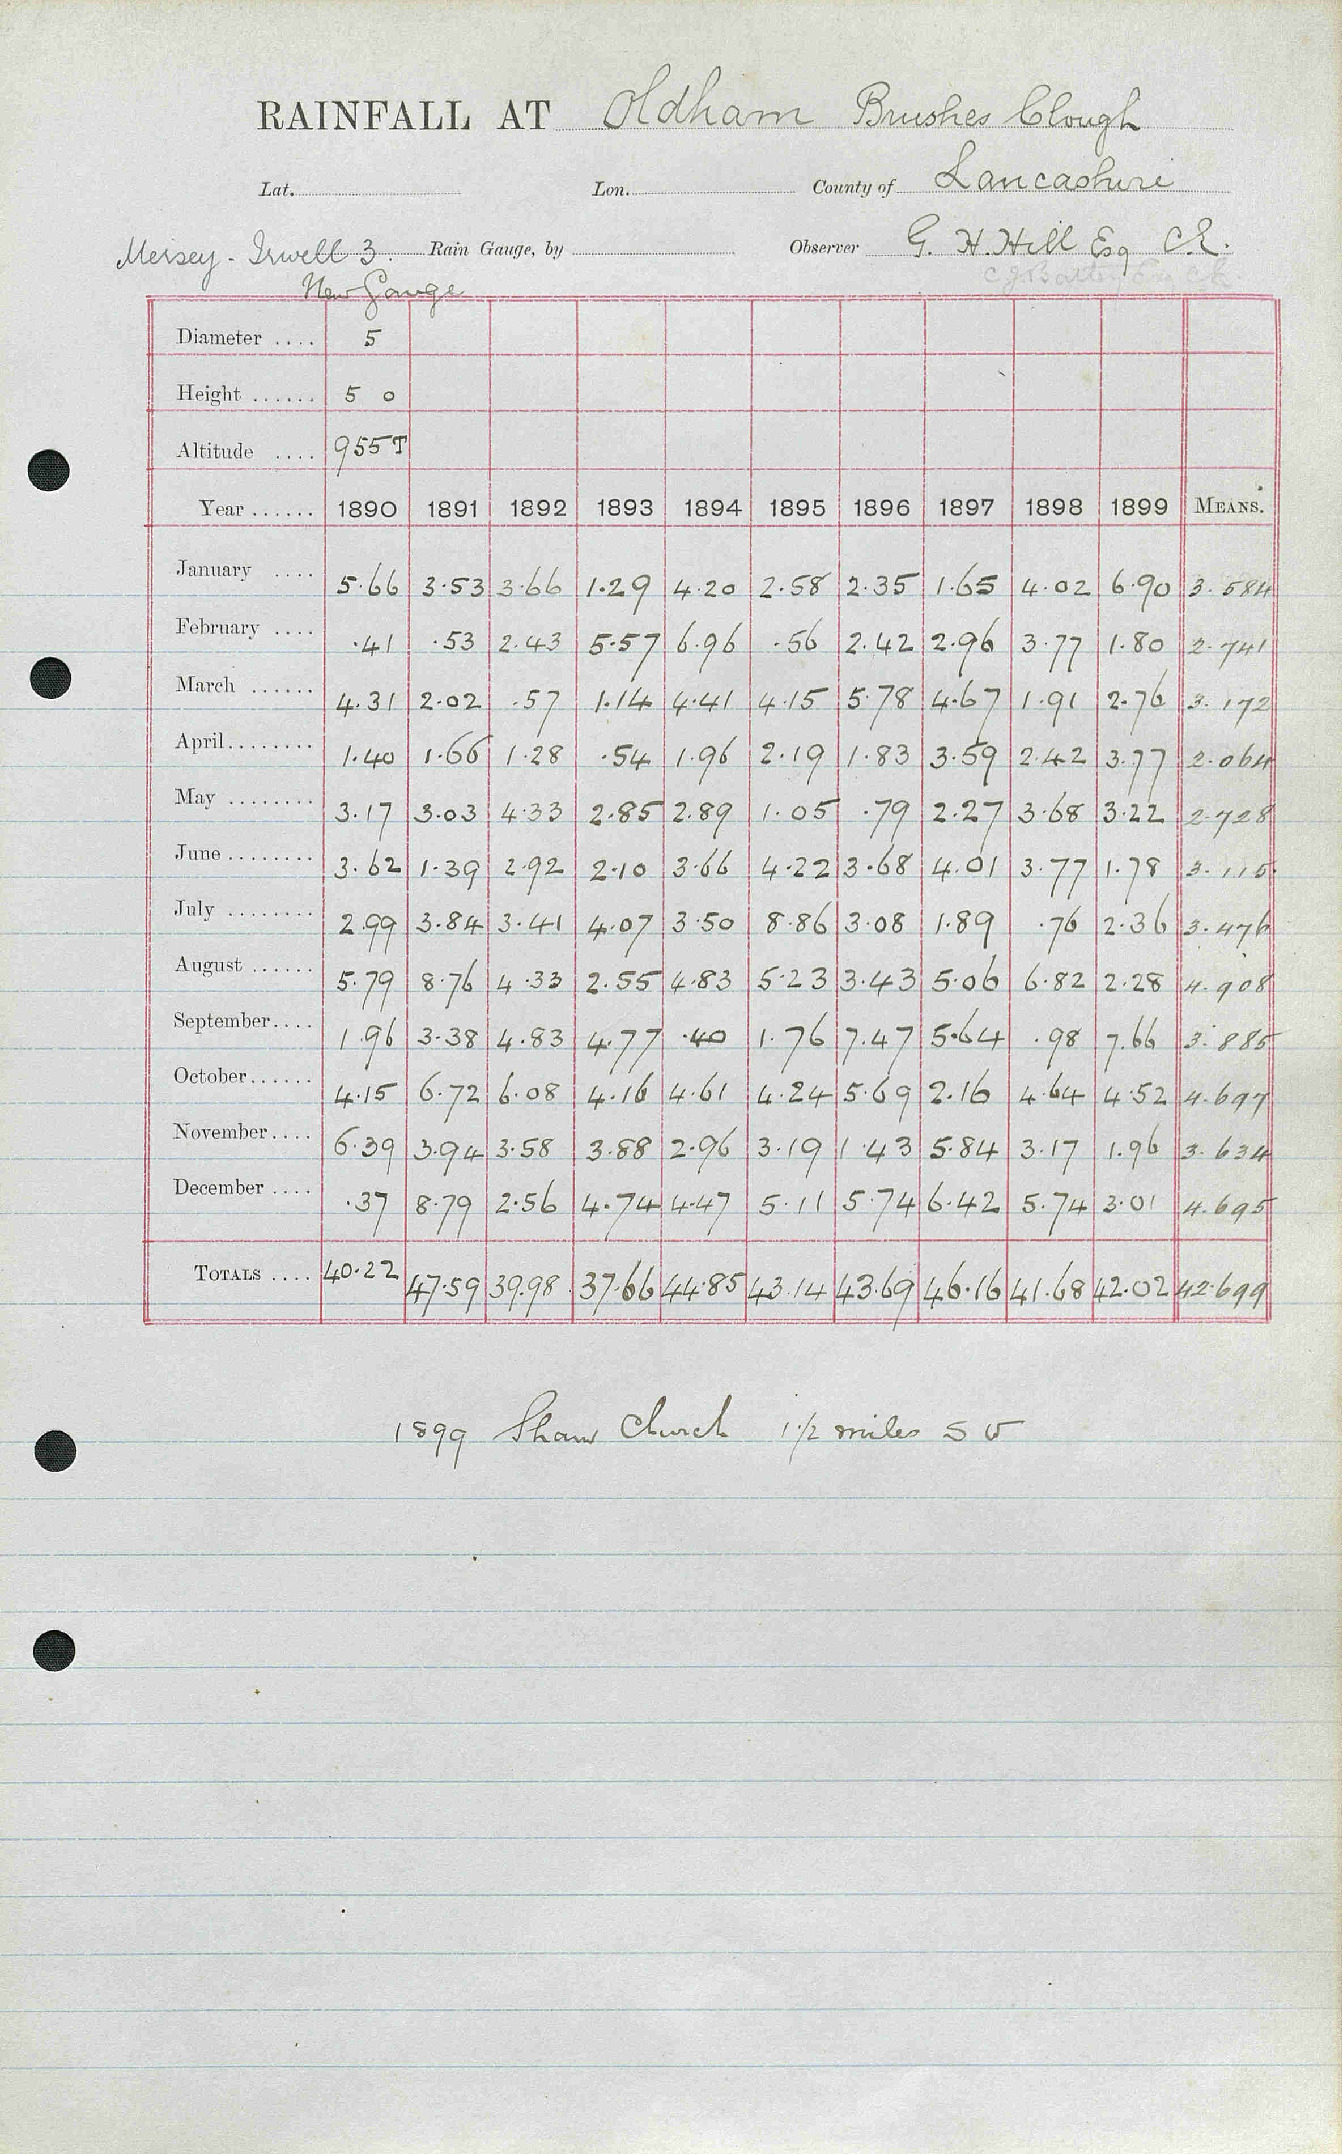 RAINFALL AT Oldham Brushes Clough
Lat. Lon. County of Lancashire
Mersey - Irwell 3. Rain Gauge, by Observer G. H. Hill Esq C.E.
New Gauge
Diameter .... 5
Height ...... 5 0
Altitude .... 955T
Year ...... 1890 1891 1892 1893 1894 1895 1896 1897 1898 1899 MEANS.
January .... 5.66 3.53 3.66 1.29 4.20 2.58 2.35 1.65 4.02 6.90 3.584
February .... .41 .53 2.43 5.57 6.96 .56 2.42 2.96 3.77 1.80 2.741
March ...... 4.31 2.02 .57 1.14 4.41 4.15 5.78 4.67 1.91 2.76 3.172
April ........ 1.40 1.66 1.28 .54 1.96 2.19 1.83 3.59 2.42 3.77 2.064
May ........ 3.17 3.03 4.33 2.85 2.89 1.05 .79 2.27 3.68 3.22 2.728
June ........ 3.62 1.39 2.92 2.10 3.66 4.22 3.68 4.01 3.77 1.78 3.115
July ........ 2.99 3.84 3.41 4.07 3.50 8.86 3.08 1.89 .76 2.36 3.476
August ...... 5.79 8.76 4.33 2.55 4.83 5.23 3.43 5.06 6.82 2.28 4.908
September .... 1.96 3.38 4.83 4.77 .40 1.76 7.47 5.64 .98 7.66 3.885
October ...... 4.15 6.72 6.08 4.16 4.61 4.24 5.69 2.16 4.64 4.52 4.697
November .... 6.39 3.94 3.58 3.88 2.96 3.19 1.43 5.84 3.17 1.96 3.634
December .... .37 8.79 2.56 4.74 4.47 5.11 5.74 6.42 5.74 3.01 4.695
TOTALS .... 40.22 47.59 39.98 37.66 44.85 43.14 43.69 46.16 41.68 42.02 42.699
1899 Shaw Church 1 1/2 miles S W